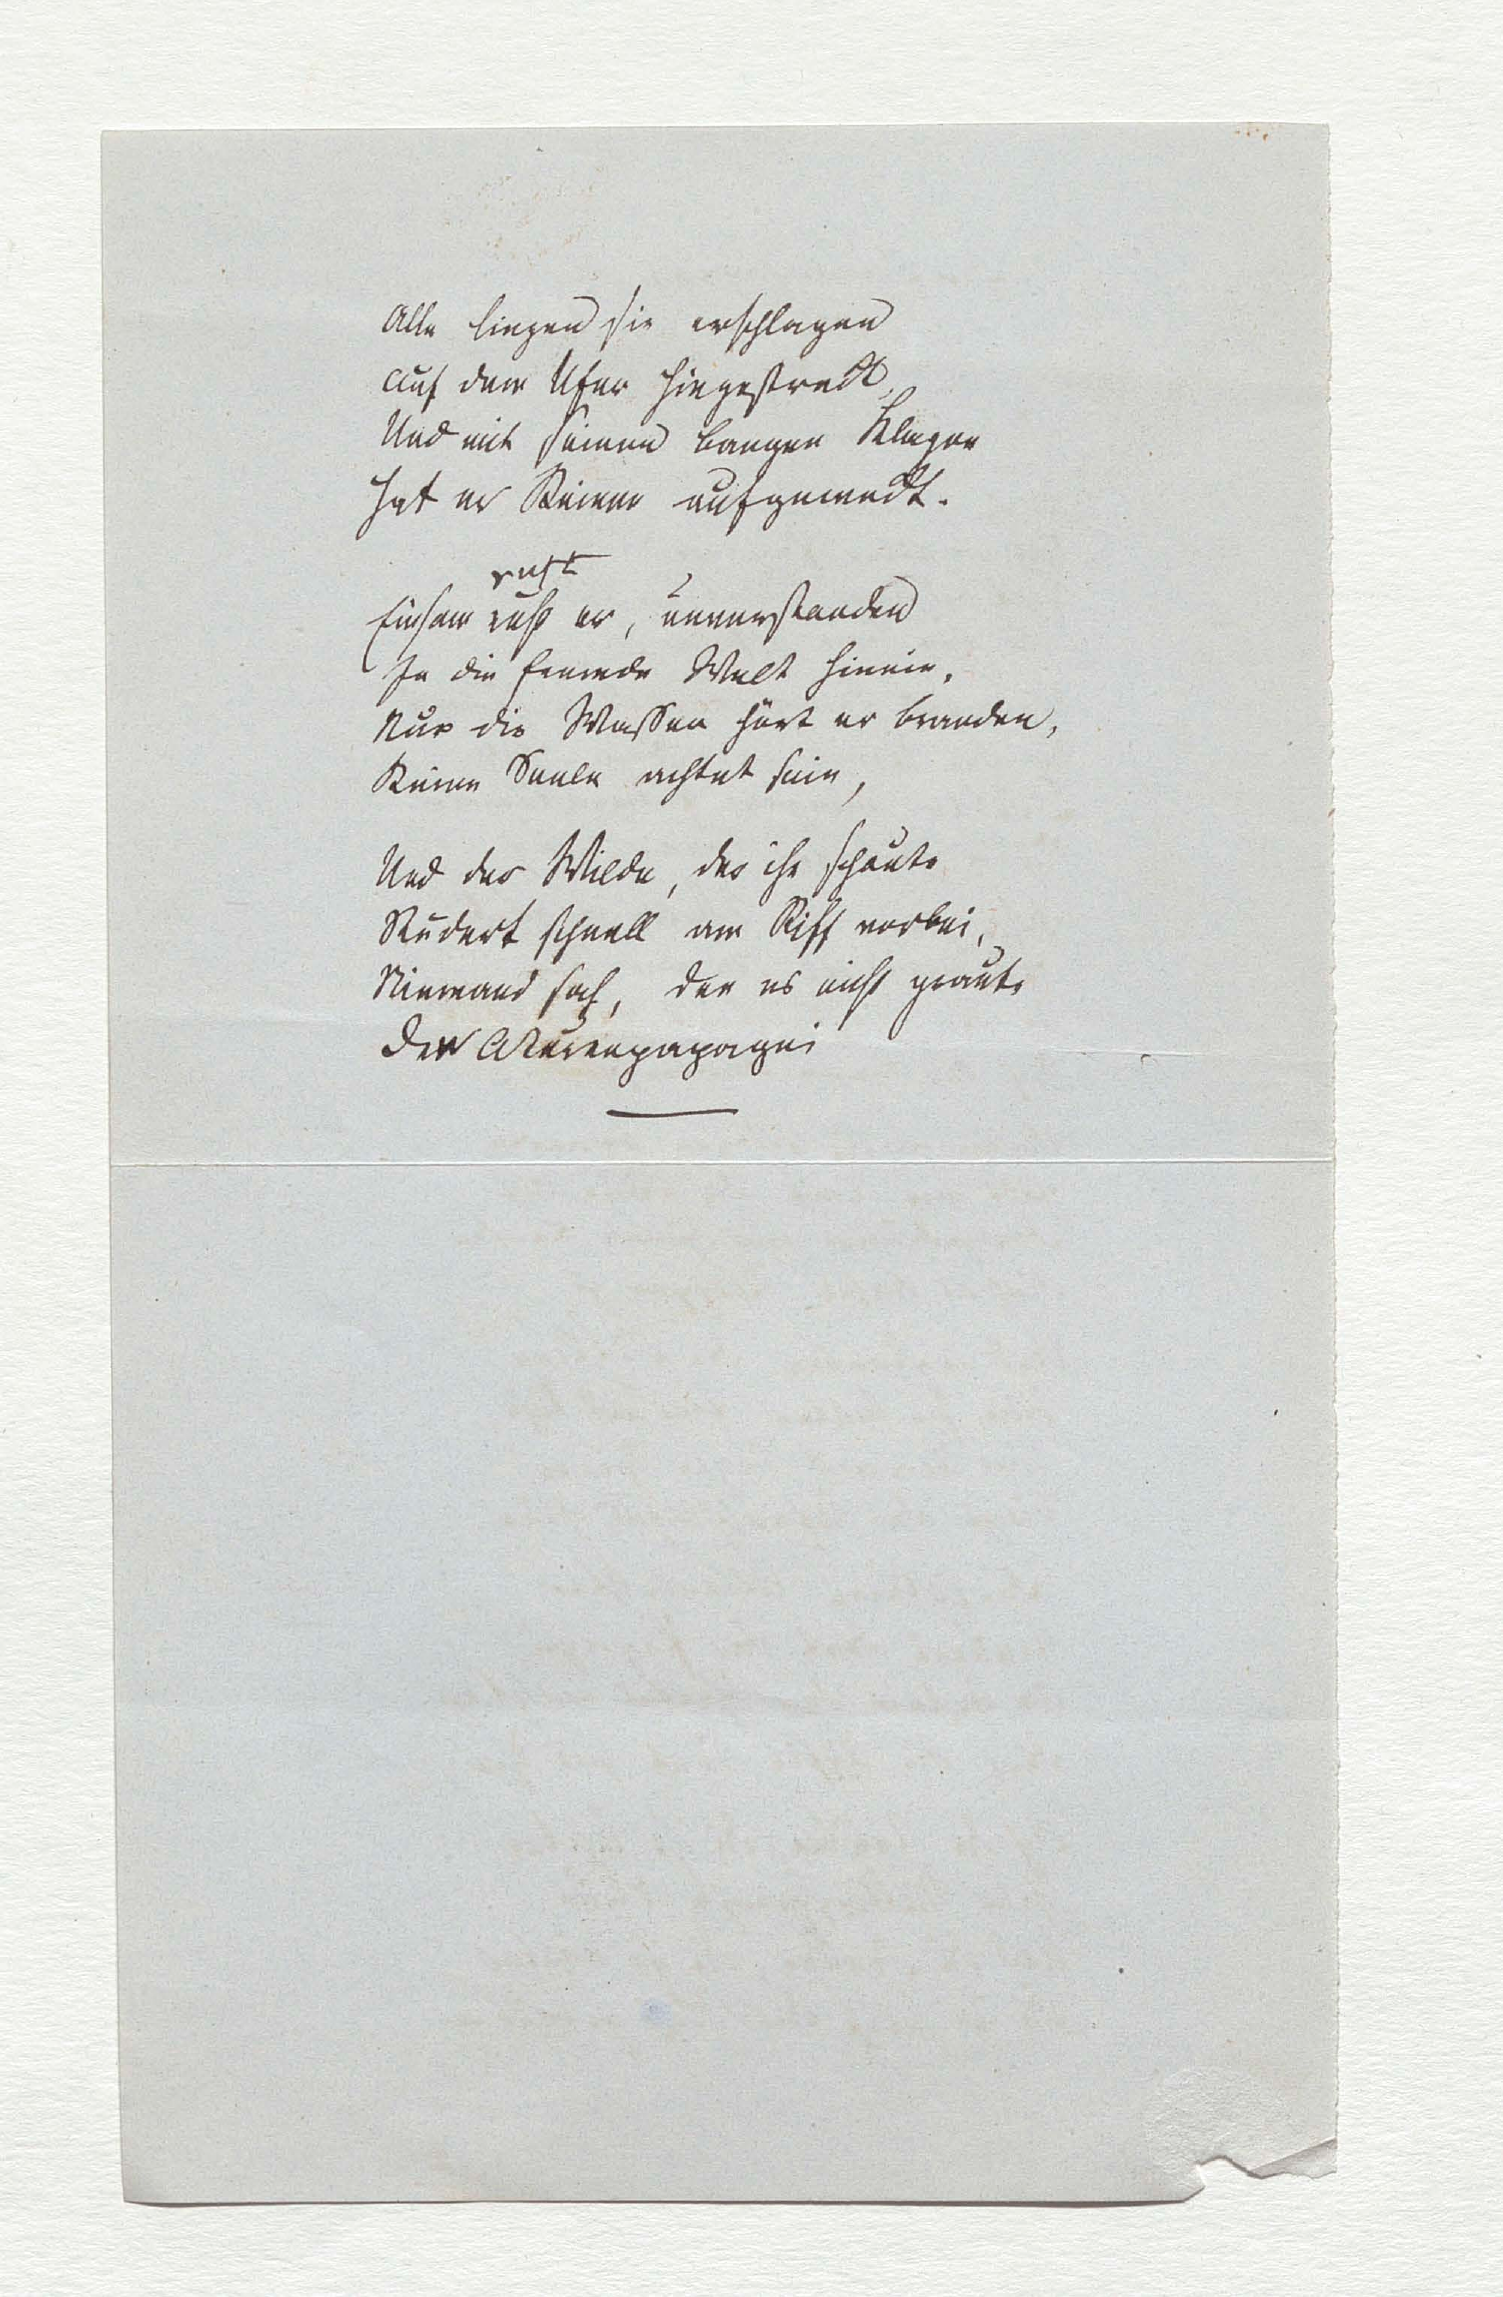 Alle liegen sie erschlagen
auf dem Ufer hingestreckt,
Und mit seinen bangen Klagen
hat er Keinen aufgeweckt.
ruft
Einsam ruft er, unverstanden
In die fremde Welt hinein,
Nur die Wasser hört er branden,
Keine Seele achtet sein,
Und der Wilde, der ihn schaute
Rudert schnell am Riff vorbei,
Niemand sah, dem es nicht graute
Den Aturenpapagei